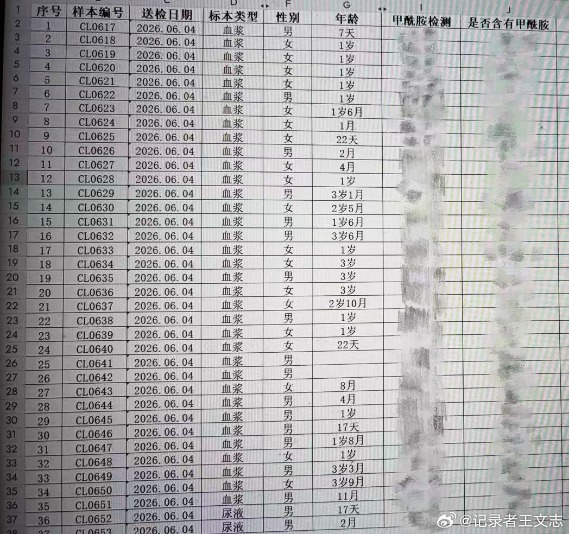 C D F G I J
1 序号 样本编号 送检日期 标本类型 性别 年龄 甲酰胺检测 是否含有甲酰胺
2 1 CL0617 2026.06.04 血浆 男 7天
3 2 CL0618 2026.06.04 血浆 女 1岁
4 3 CL0619 2026.06.04 血浆 女 1岁
5 4 CL0620 2026.06.04 血浆 女 1岁
6 5 CL0621 2026.06.04 血浆 女 1岁
7 6 CL0622 2026.06.04 血浆 男 1岁
8 7 CL0623 2026.06.04 血浆 女 1岁6月
9 8 CL0624 2026.06.04 血浆 女 1月
10 9 CL0625 2026.06.04 血浆 女 22天
11 10 CL0626 2026.06.04 血浆 男 2月
12 11 CL0627 2026.06.04 血浆 女 4月
13 12 CL0628 2026.06.04 血浆 女 1岁
14 13 CL0629 2026.06.04 血浆 男 3岁1月
15 14 CL0630 2026.06.04 血浆 女 2岁5月
16 15 CL0631 2026.06.04 血浆 男 1岁6月
17 16 CL0632 2026.06.04 血浆 男 3岁6月
18 17 CL0633 2026.06.04 血浆 女 1岁
19 18 CL0634 2026.06.04 血浆 女 3岁
20 19 CL0635 2026.06.04 血浆 男 3岁
21 20 CL0636 2026.06.04 血浆 女 3岁
22 21 CL0637 2026.06.04 血浆 女 2岁10月
23 22 CL0638 2026.06.04 血浆 男 1岁
24 23 CL0639 2026.06.04 血浆 女 1岁
25 24 CL0640 2026.06.04 血浆 女 22天
26 25 CL0641 2026.06.04 血浆 男
27 26 CL0642 2026.06.04 血浆 男
28 27 CL0643 2026.06.04 血浆 女 8月
29 28 CL0644 2026.06.04 血浆 男 4月
30 29 CL0645 2026.06.04 血浆 男 1岁
31 30 CL0646 2026.06.04 血浆 男 17天
32 31 CL0647 2026.06.04 血浆 男 1岁8月
33 32 CL0648 2026.06.04 血浆 女 1岁
34 33 CL0649 2026.06.04 血浆 男 3岁3月
35 34 CL0650 2026.06.04 血浆 女 3岁9月
36 35 CL0651 2026.06.04 血浆 男 11月
37 36 CL0652 2026.06.04 尿液 男 17天
CL0653 2026.06.04 尿液 男 2月
@记录者王文志